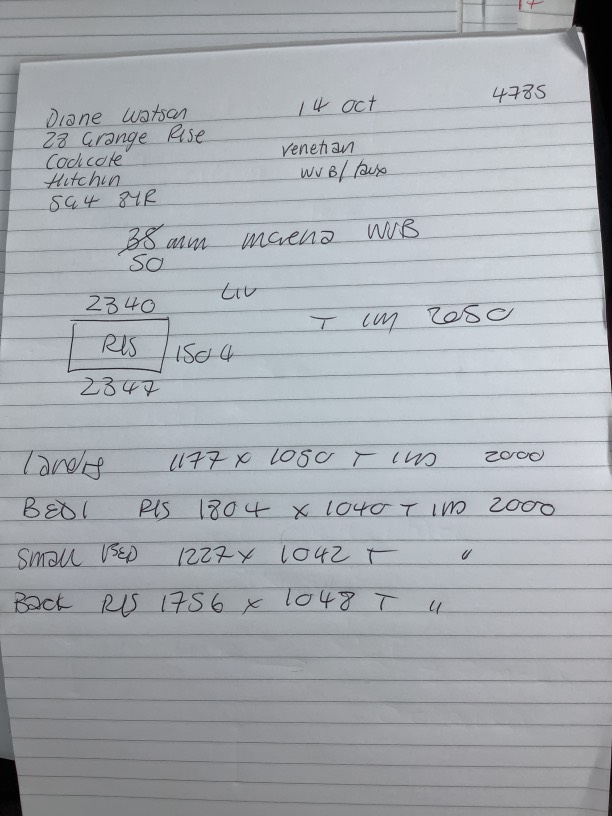 Diane Watson 14 Oct 4785
28 Grange Rise
Codicote Venetian
Hitchin WVB/faux
SG4 8YR
38 mm WVB
50
2340 LIV
RIS 1504 T IM 2050
2347
Landg 1177 x 1050 T IM 2000
BED1 RIS 1804 x 1040 T IM 2000
Small BED 1227 x 1042 T "
Back RIS 1756 x 1048 T "